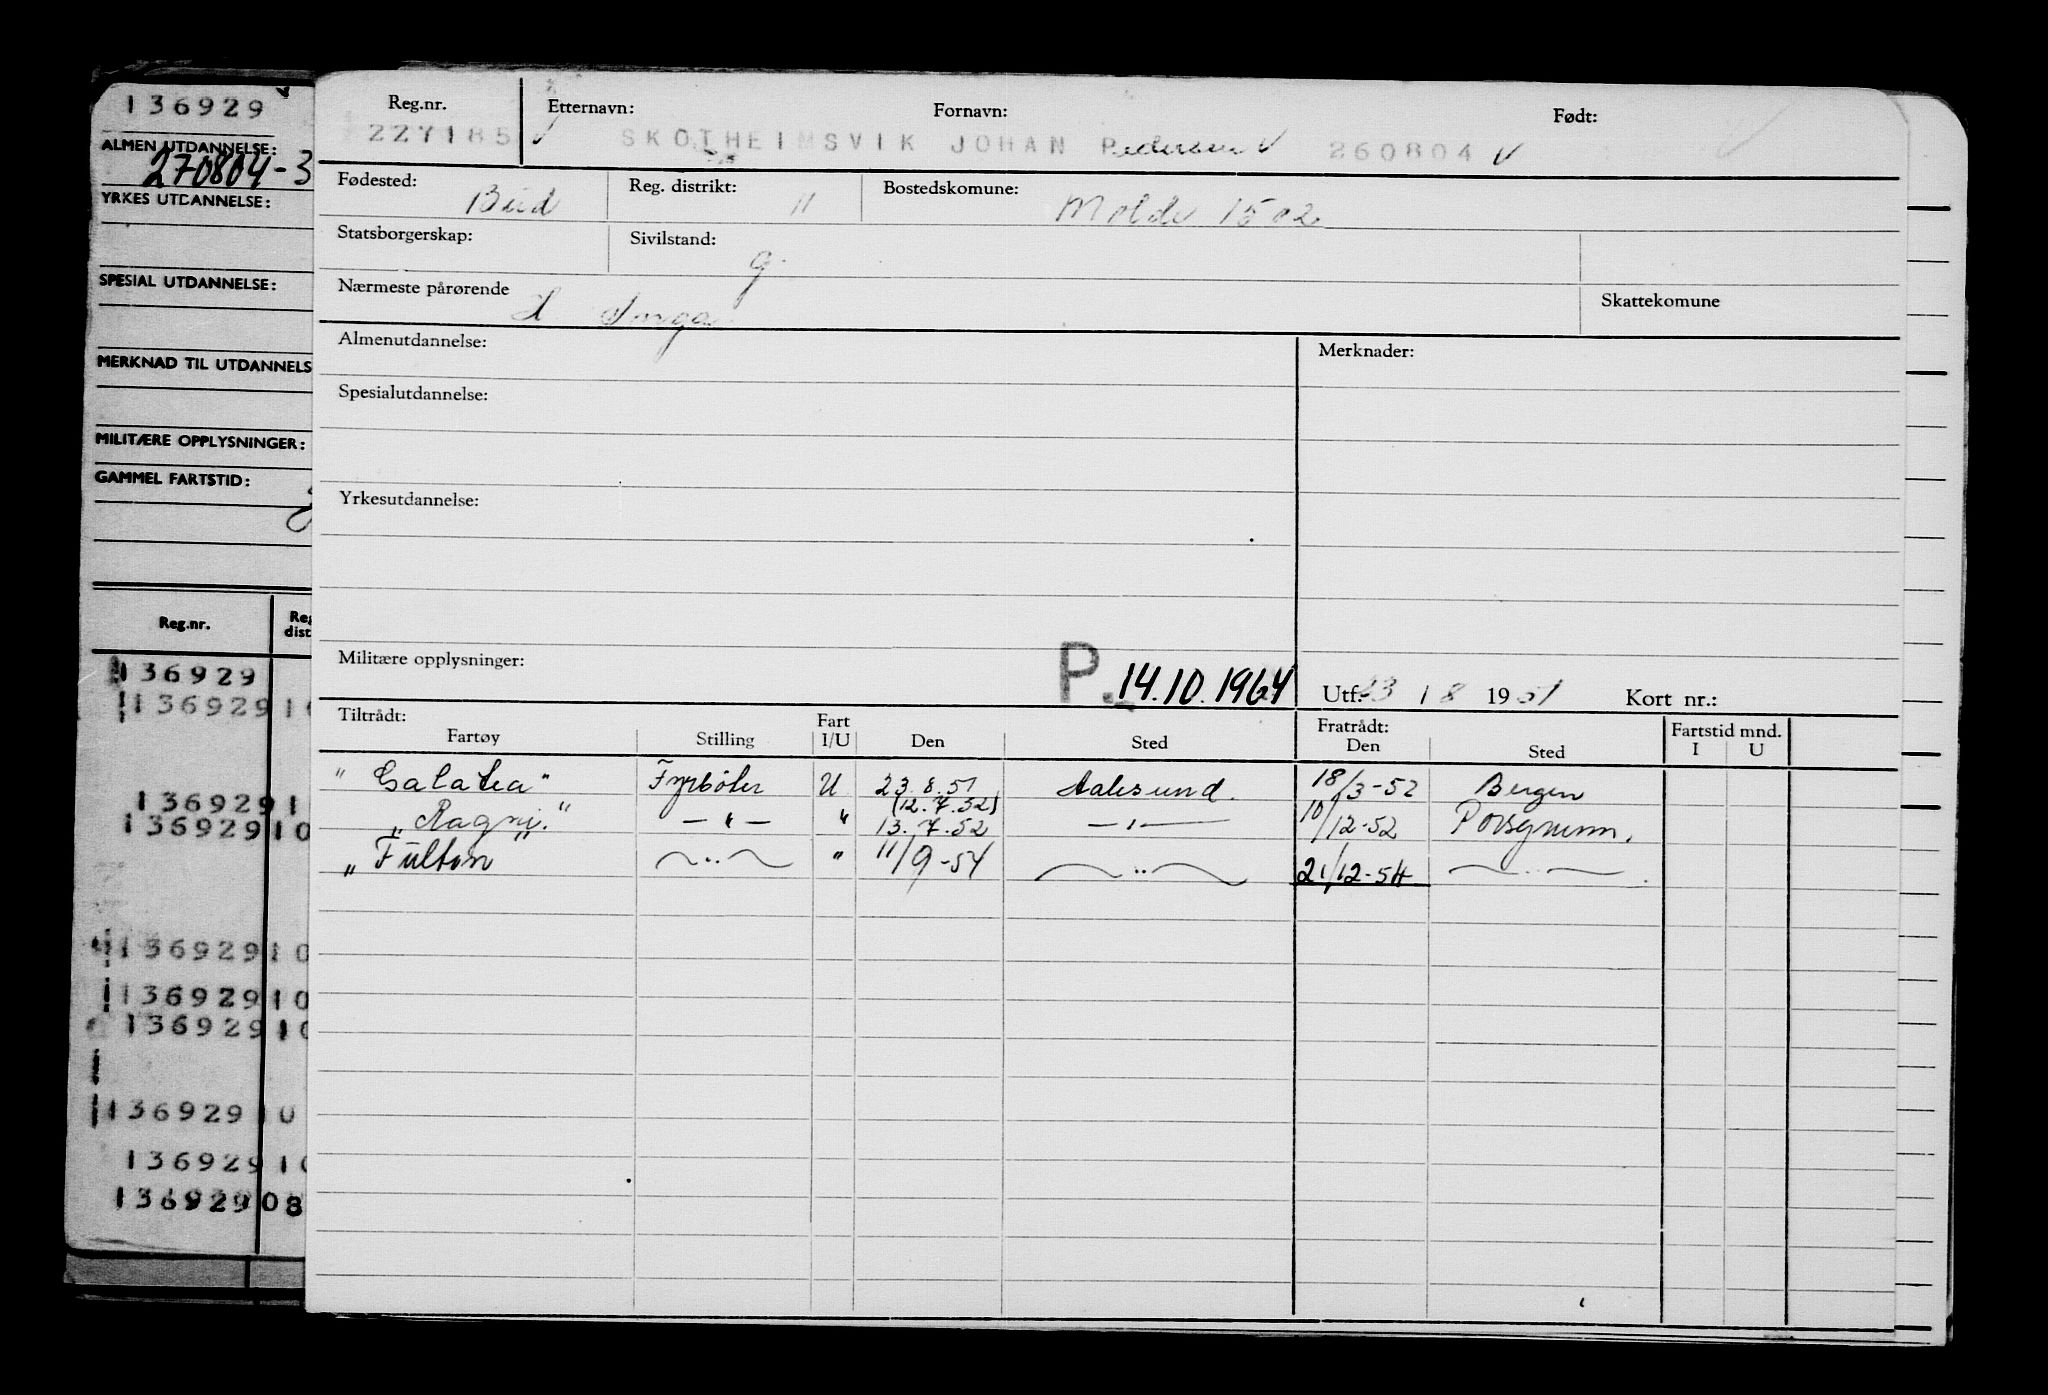 136929
ALMEN UTDANNELSE:
270804-3
YRKES UTDANNELSE:
SPESIAL UTDANNELSE:
MERKNAD TIL UTDANNELS
MILITÆRE OPPLYSNINGER:
GAMMEL FARTSTID:
Reg.nr. Reg dist
136929
136929 1
136929 1
136929 10
136929 10
136929 10
136929 10
136929 10
136929 10
136929 08
Reg.nr. Etternavn: Fornavn: Født:
227185 SKOTHEIMSVIK JOHAN Pedersen 260804
Fødested: Bud Reg. distrikt: 11 Bostedskomune: Molde 1502
Statsborgerskap: Sivilstand: g.
Nærmeste pårørende H Inga Skattekomune
Almenutdannelse: Merknader:
Spesialutdannelse:
Yrkesutdannelse:
Militære opplysninger: P. 14.10.1964 Utf. 23 / 8 1951 Kort nr.:
Tiltrådt: Fart Fratrådt: Fartstid mnd.
Fartøy Stilling I/U Den Sted Den Sted I U
"Galatea" Fyrbøter U 23.8.51 Aalesund. 18/3-52 Bergen
(12.7.52)
"Ragni." —"— " 13.7.52 —"— 10/12-52 Porsgrunn.
"Fulton" ~"~ " 11/9-54 ~"~ 21/12-54 ~"~